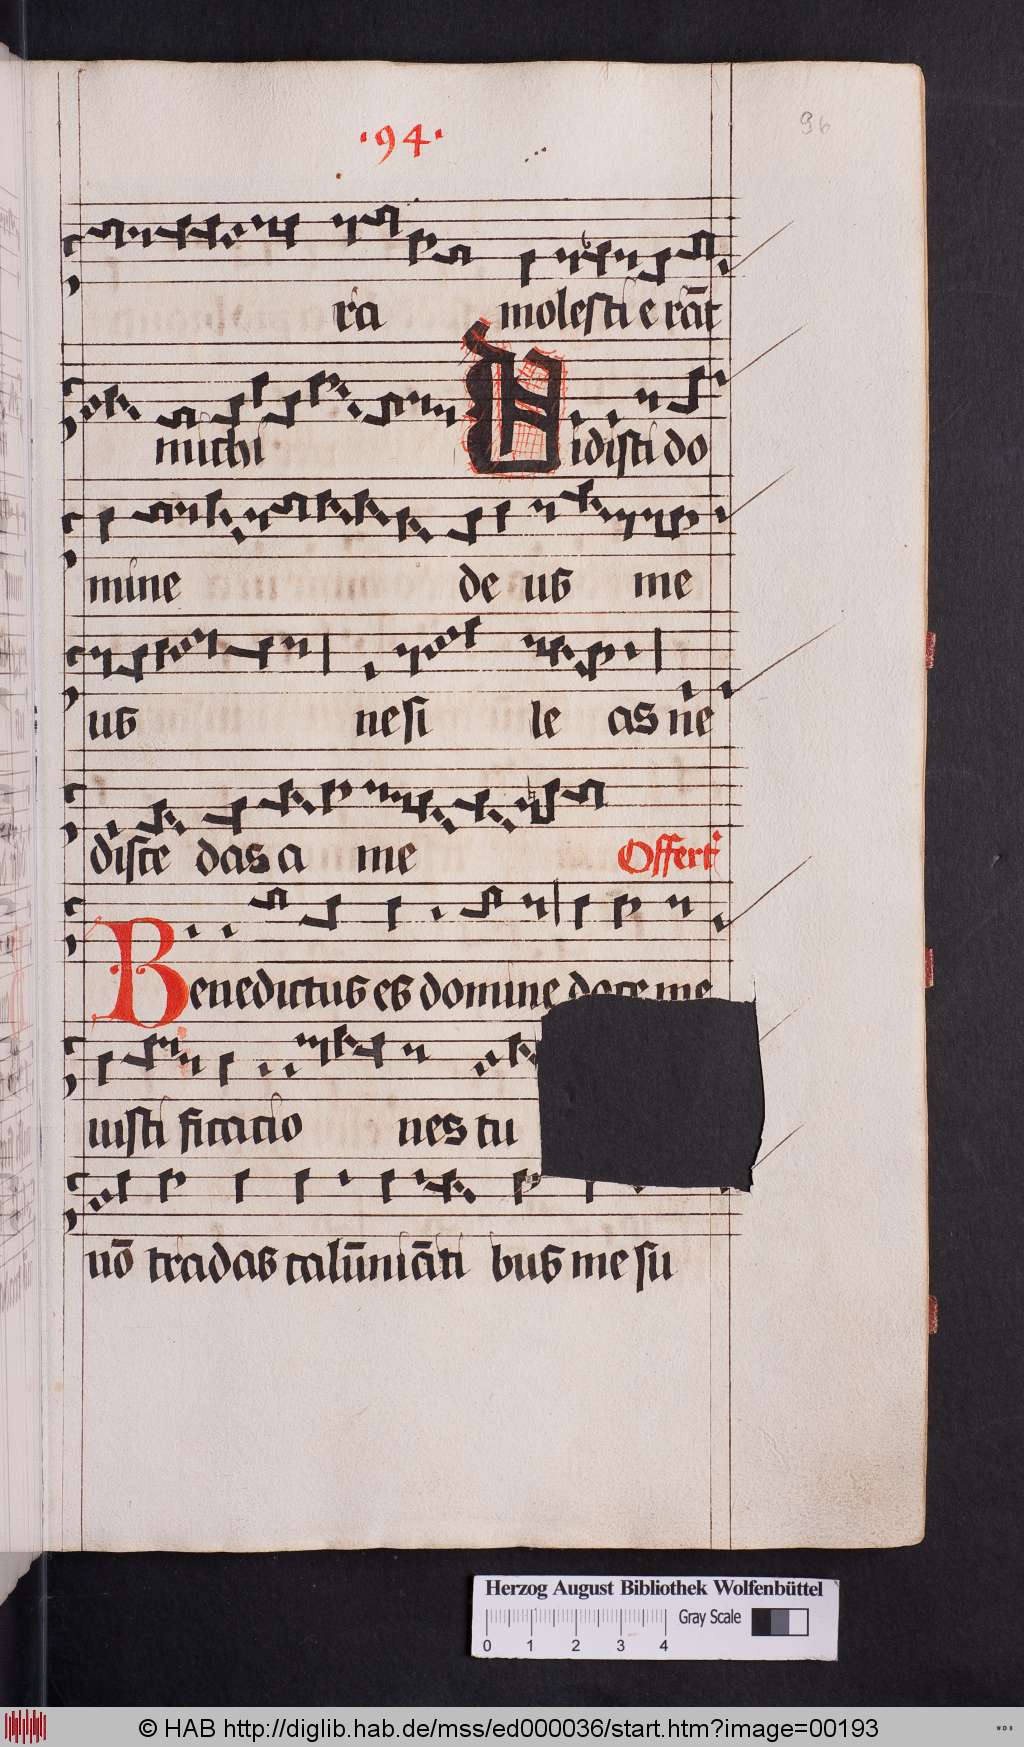 ·94·
96
ra molesti e rāt
michi Vidisti do
mine de us me
us ne si le as ne
disce das a me Offert
Benedictus es domine doce me
iusti ficatio nes tu
nō tradas calūniāti bus me su
Herzog August Bibliothek Wolfenbüttel
Gray Scale
0 1 2 3 4
© HAB http://diglib.hab.de/mss/ed000036/start.htm?image=00193